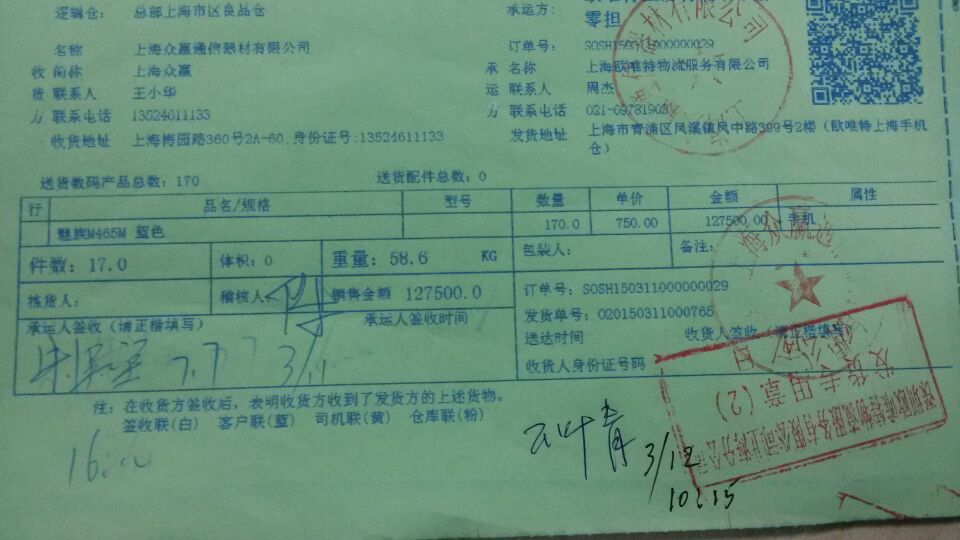 逻辑仓： 总部上海市区良品仓 承运方：
零担
订单号： SOSH150311000000029
名称 上海众赢通信器材有限公司 承 名称 上海欧唯特物流服务有限公司
收 简称 上海众赢 运 联系人 周杰
货 联系人 王小华 方 联系电话 021-69781903
方 联系电话 13524611133 发货地址 上海市青浦区凤溪镇凤中路399号2楼（欧唯特上海手机仓）
收货地址 上海梅园路360号2A-60,身份证号:13524611133
送货数码产品总数：170 送货配件总数：0
行 品名/规格 型号 数量 单价 金额 属性
魅族M465M 蓝色 170.0 750.00 127500.00 手机
件数：17.0 体积：0 重量：58.6 KG 包装人： 备注：
拣货人： 稽核人： 销售金额 127500.0 订单号：SOSH150311000000029
发货单号：020150311000765
承运人签收（请正楷填写） 承运人签收时间 送达时间 收货人签收（请正楷填写）
收货人身份证号码
3/11
注：在收货方签收后，表明收货方收到了发货方的上述货物。
签收联(白) 客户联(蓝) 司机联(黄) 仓库联(粉)
16:00
3/12
10:15
深圳欧唯特物流服务有限公司上海分公司
发货专用章(2)